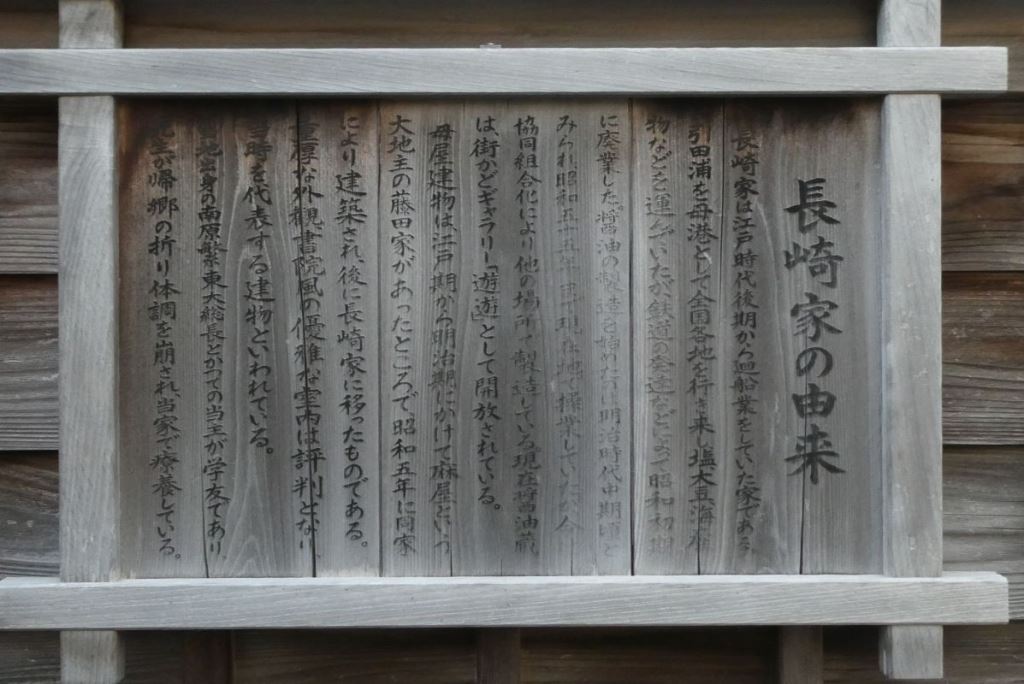 長崎家の由来
長崎家は江戸時代後期から廻船業をしていた家である。
引田浦を母港として全国各地を行き来し塩大豆海産
物などを運んでいたが鉄道の発達などによって昭和初期
に廃業した。醤油の製造を始めたのは明治時代中期頃と
みられ、昭和五十五年まで現在地で操業していたが、今
協同組合化により他の場所で製造している。現在醤油蔵
は、街かどギャラリー「遊遊」として開放されている。
母屋建物は、江戸期から明治期にかけて麻屋という
大地主の藤田家があったところで、昭和五年に同家
により建築され、後に長崎家に移ったものである。
重厚な外観、書院風の優雅な室内は評判となり、
当時を代表する建物といわれている。
当地出身の南原繁東大総長とかつての当主が学友であり、
先生が帰郷の折り体調を崩され、当家で療養している。